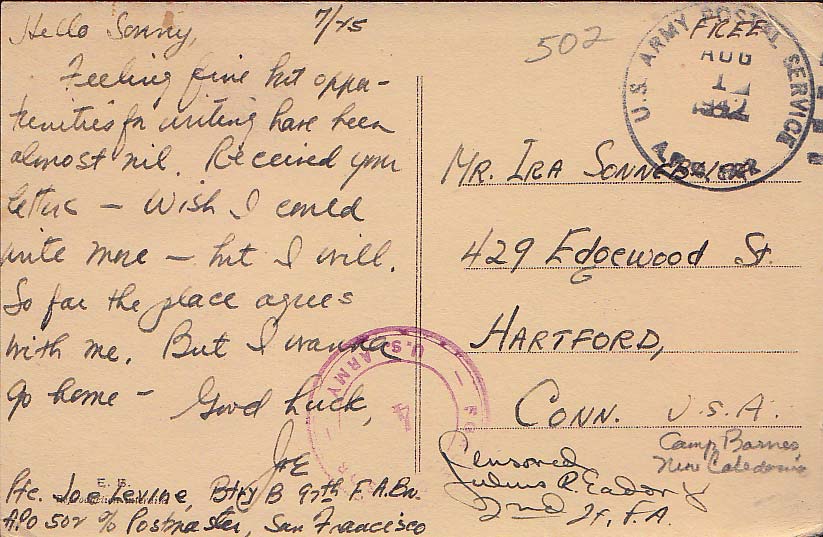 Hello Sonny, 7/25
Feeling fine but oppor-
tunities for writing have been
almost nil. Received your
letter — Wish I could
write more — but I will.
So far the place agrees
with me. But I wanna
go home — Good Luck,
Joe
Pfc. Joe Levine, Btry B 97th F.A. Bn.
APO 502 % Postmaster, San Francisco
E. B.
502
FREE
U.S. ARMY POSTAL SERVICE
AUG
1
1942
A.P.O.
MR. IRA
429 Edgewood St.
HARTFORD,
CONN. U.S.A.
Camp Barnes
New Caledonia
Censored
2nd Lt. F.A.
U.S. ARMY